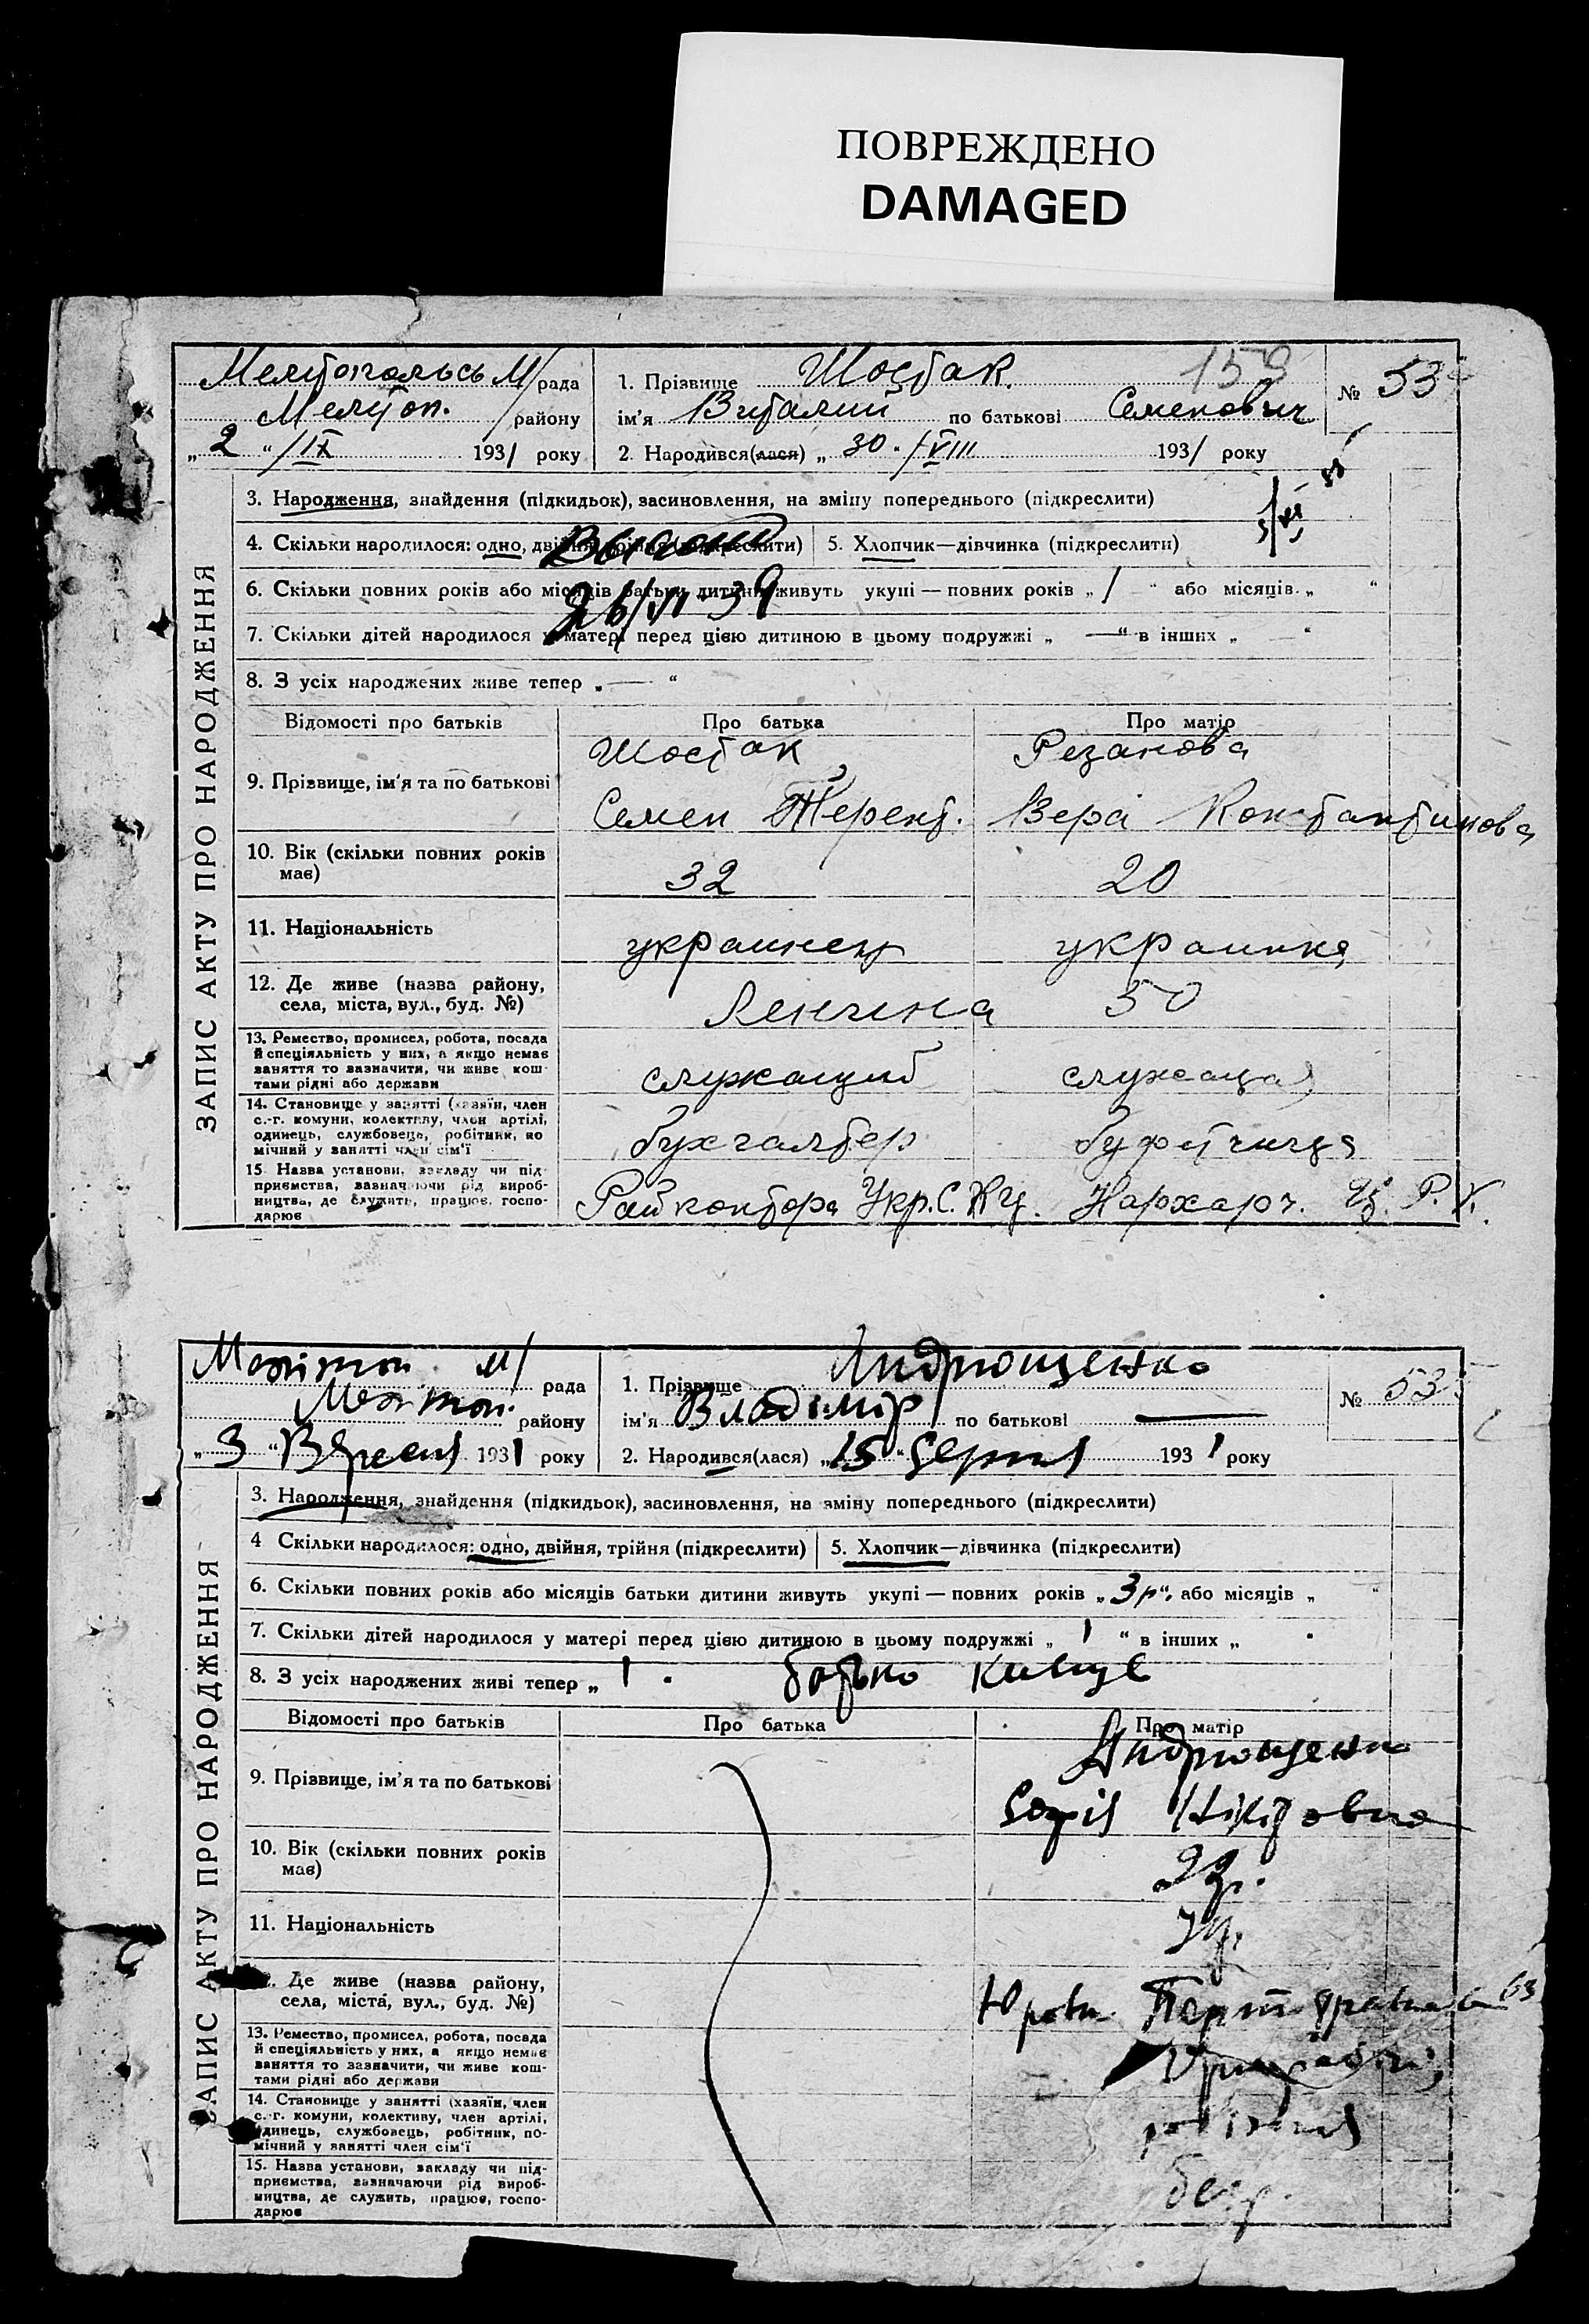 ПОВРЕЖДЕНО
DAMAGED
Мелитопольсь М/рада
Мелитоп. району
„2“/IX 1931 року
1. Прізвище Шостак. 159
ім'я Виталий по батькові Семенович
2. Народився(лася) „30“/VIII 1931 року
№ 53
ЗАПИС АКТУ ПРО НАРОДЖЕННЯ
3. Народження, знайдення (підкидьок), засиновлення, на зміну попереднього (підкреслити)
4. Скільки народилося: одно, двійня, трійня (підкреслити) 5. Хлопчик—дівчинка (підкреслити)
6. Скільки повних років або місяців батьки дитини живуть укупі — повних років „1“ або місяців „ “
26/VI-39
7. Скільки дітей народилося у матері перед цією дитиною в цьому подружжі „—“ в інших „—“
8. З усіх народжених живе тепер „—“
Відомості про батьків Про батька Про матір
9. Прізвище, ім'я та по батькові
Шостак Резанова
Семен Терент. Вера Константинова
10. Вік (скільки повних років має) 32 20
11. Національність украинец украинка
12. Де живе (назва району, села, міста, вул., буд. №) Ленина 50
13. Ремество, промисел, робота, посада й спеціяльність у них, а якщо немає заняття то зазначити, чи живе коштами рідні або держави служащий служащая
14. Становище у занятті (хазяїн, член с.-г. комуни, колективу, член артілі, одинець, службовець, робітник, помічний у занятті член сім'ї бухгалтер буфетчица
15. Назва установи, закладу чи підприємства, зазначаючи рід виробництва, де служить, працює, господарює Райконтора Укр.С. Нархарч. Р. К.
М/ рада
району
„3“ Вересня 1931 року
1. Прізвище Андрющенко
ім'я Владімір по батькові —
2. Народився(лася) „15“ Серпня 1931 року
№ 53
ЗАПИС АКТУ ПРО НАРОДЖЕННЯ
3. Народження, знайдення (підкидьок), засиновлення, на зміну попереднього (підкреслити)
4 Скільки народилося: одно, двійня, трійня (підкреслити) 5. Хлопчик—дівчинка (підкреслити)
6. Скільки повних років або місяців батьки дитини живуть укупі — повних років „3р“, або місяців „ “
7. Скільки дітей народилося у матері перед цією дитиною в цьому подружжі „1“ в інших „
8. З усіх народжених живі тепер „1“ батько
Відомості про батьків Про батька Про матір
9. Прізвище, ім'я та по батькові
Андрющенко
Софія Нікітовна
10. Вік (скільки повних років має)
11. Національність
Де живе (назва району, села, міста, вул., буд. №) 63
13. Ремество, промисел, робота, посада й спеціяльність у них, а якщо немає заняття то зазначити, чи живе коштами рідні або держави
14. Становище у занятті (хазяїн, член с.-г. комуни, колективу, член артілі, одинець, службовець, робітник, помічний у занятті член сім'ї
15. Назва установи, закладу чи підприємства, зазначаючи рід виробництва, де служить, працює, господарює